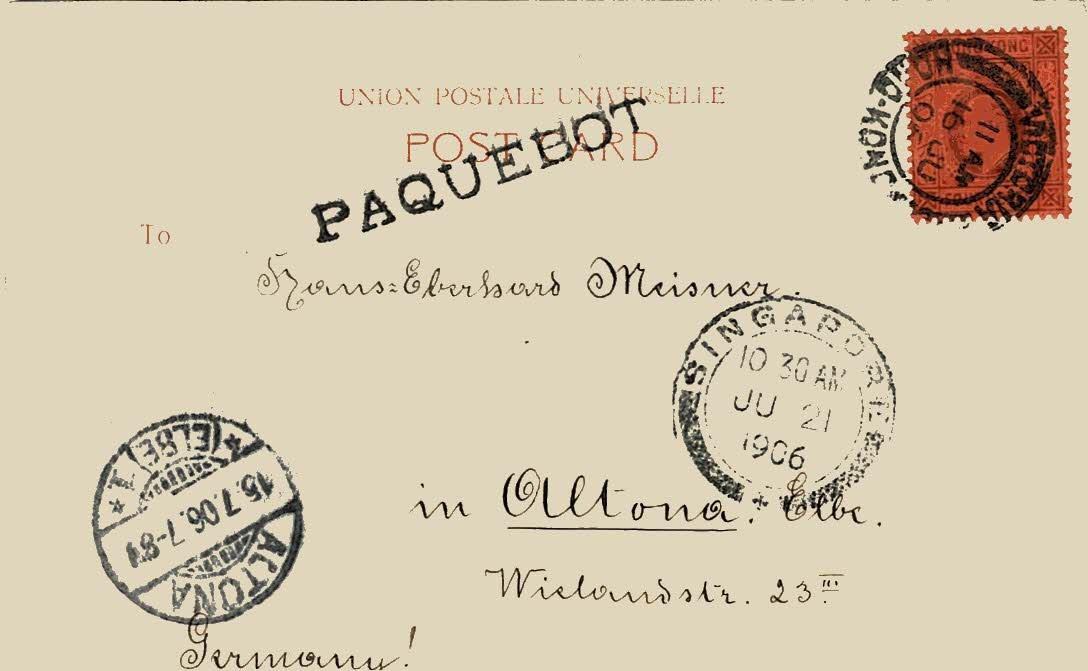 HONG KONG
VICTORIA
HONG-KONG
11 AM
16 JU
06
UNION POSTALE UNIVERSELLE
POST CARD
PAQUEBOT
To
Hans=Eberhard Meisner.
SINGAPORE
10 30 AM
JU 21
1906
in Altona. Elbe.
Wielandstr. 23 III
Germany!
ALTONA
15.7.06.7-8V
* (ELBE) 1 *